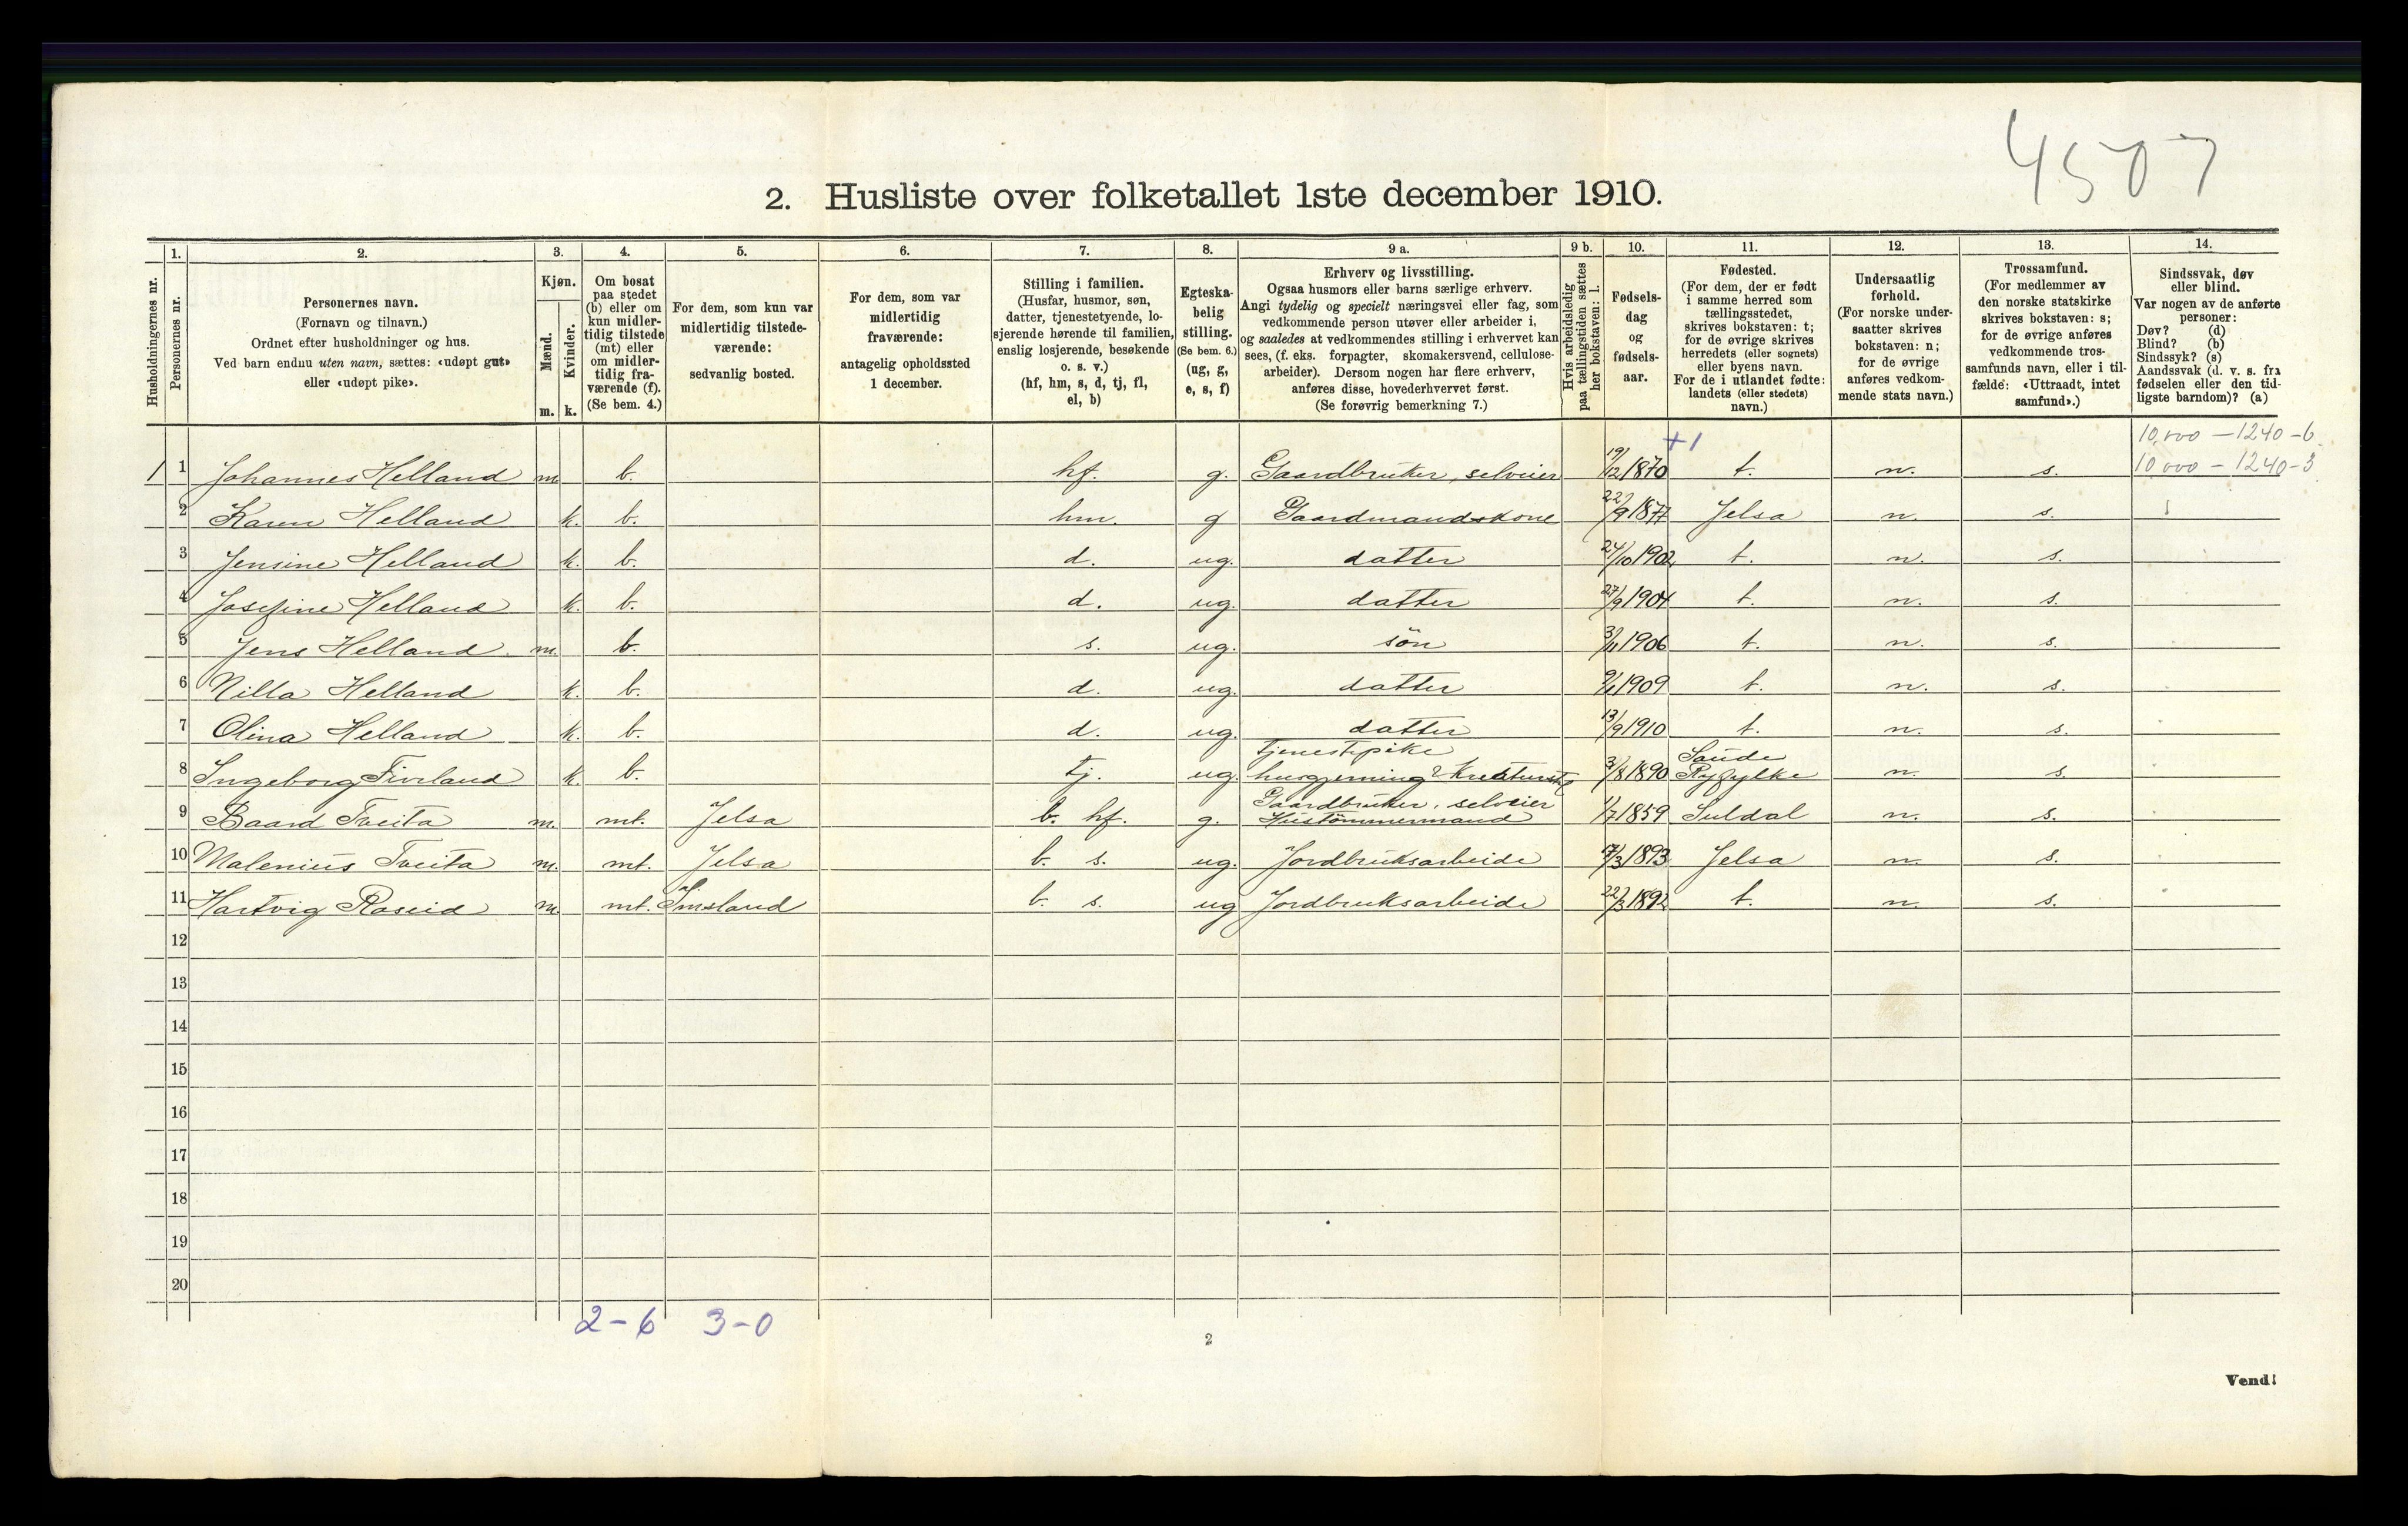 4507
2. Husliste over folketallet 1ste december 1910.
Husholdningernes nr.
1.
Personernes nr.
2.
Personernes navn.
(Fornavn og tilnavn.)
Ordnet efter husholdninger og hus.
Ved barn endnu uten navn, sættes: «udøpt gut»
eller «udøpt pike».
3.
Kjøn.
Mænd.
Kvinder.
m. k.
4.
Om bosat
paa stedet
(b) eller om
kun midler-
tidig tilstede
(mt) eller
om midler-
tidig fra-
værende (f).
(Se bem. 4.)
5.
For dem, som kun var
midlertidig tilstede-
værende:
sedvanlig bosted.
6.
For dem, som var
midlertidig
fraværende:
antagelig opholdssted
1 december.
7.
Stilling i familien.
(Husfar, husmor, søn,
datter, tjenestetyende, lo-
sjerende hørende til familien,
enslig losjerende, besøkende
o. s. v.)
(hf, hm, s, d, tj, fl,
el, b)
8.
Egteska-
belig
stilling.
(Se bem. 6.)
(ug, g,
e, s, f)
9 a.
Erhverv og livsstilling.
Ogsaa husmors eller barns særlige erhverv.
Angi tydelig og specielt næringsvei eller fag, som
vedkommende person utøver eller arbeider i,
og saaledes at vedkommendes stilling i erhvervet kan
sees, (f. eks. forpagter, skomakersvend, cellulose-
arbeider). Dersom nogen har flere erhverv,
anføres disse, hovederhvervet først.
(Se forøvrig bemerkning 7.)
9 b.
Hvis arbeidsledig
paa tællingstiden sættes
her bokstaven: l.
10.
Fødsels-
dag
og
fødsels-
aar.
11.
Fødested.
(For dem, der er født
i samme herred som
tællingsstedet,
skrives bokstaven: t;
for de øvrige skrives
herredets (eller sognets)
eller byens navn.
For de i utlandet fødte:
landets (eller stedets)
navn.)
12.
Undersaatlig
forhold.
(For norske under-
saatter skrives
bokstaven: n;
for de øvrige
anføres vedkom-
mende stats navn.)
13.
Trossamfund.
(For medlemmer av
den norske statskirke
skrives bokstaven: s;
for de øvrige anføres
vedkommende tros-
samfunds navn, eller i til-
fælde: «Uttraadt, intet
samfund».)
14.
Sindssvak, døv
eller blind.
Var nogen av de anførte
personer:
Døv? (d)
Blind? (b)
Sindssyk? (s)
Aandssvak (d. v. s. fra
fødselen eller den tid-
ligste barndom)? (a)
+1 10,000 - 1240 - 6
10,000 - 1240 - 3
1 1 Johannes Helland m b. hf. g. Gaardbruker, selveier 19/12 1870 t. n. s.
2 Karen Helland k. b. hm. g Gaardmandskone 22/9 1877 Jelsa n. s.
3 Jensine Helland k. b. d. ug. datter 24/10 1902 t. n. s.
4 Josefine Helland k. b. d. ug. datter 27/9 1904 t. n. s.
5 Jens Helland m. b. s. ug. søn 3/11 1906 t. n. s.
6 Nilla Helland k. b. d. ug. datter 1909 t. n. s.
7 Olina Helland k. b. d. ug. datter 13/9 1910 t. n. s.
8 Ingeborg Fiveland k. b. tj. ug. tjenestepike
husgjerning & Kreaturstel 3/8 1890 Saude
Ryfylke n. s.
9 Baard Tveita m. mt. Jelsa b. hf. g. Gaardbruker, selveier
Hustømmermand 1/7 1859 Suldal n. s.
10 Malenius Tveita m. mt. Jelsa b. s. ug. Jordbruksarbeide 17/3 1893 Jelsa n. s.
11 Hartvig Røseid m mt. Imsland b. s. ug Jordbruksarbeide 22/3 1892 t. n. s.
12
13
14
15
16
17
18
19
20
2-6 3-0
2
Vend!